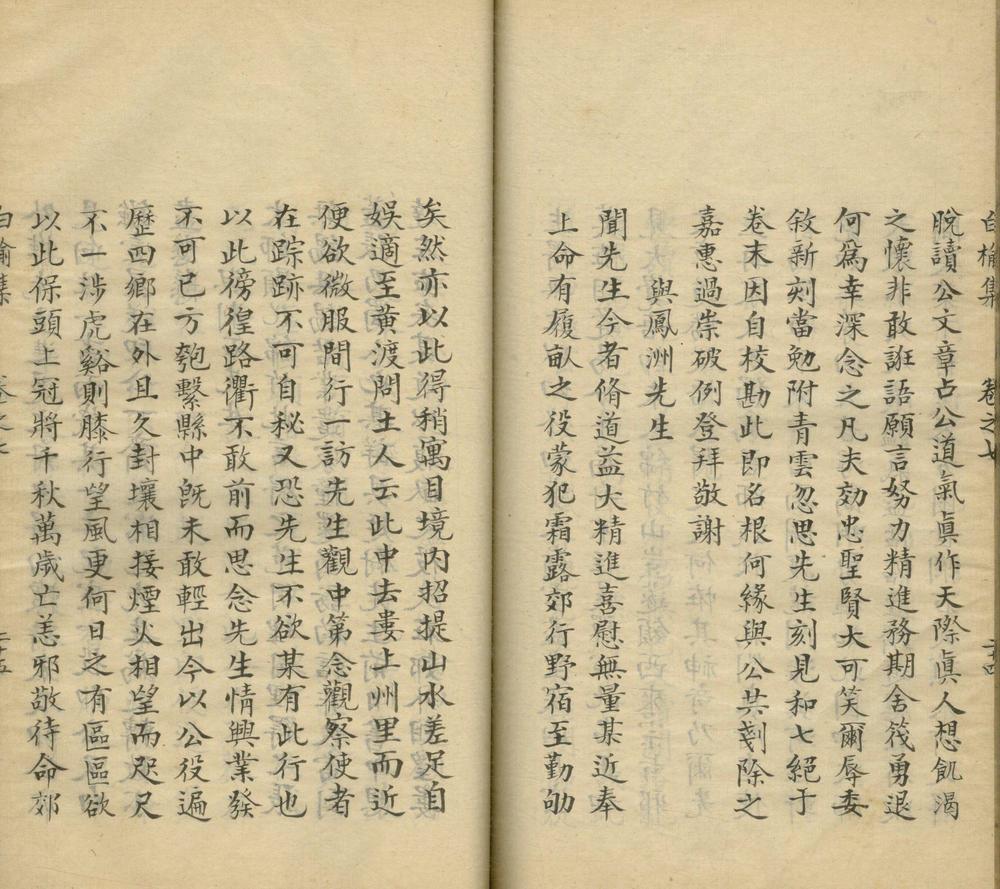 白榆集 卷之七 二十四
脫讀公文章占公道氣眞作天際眞人想飢渴
之懷非敢誑語願言努力精進務期舍筏勇退
何爲幸深念之凡夫効忠聖賢大可笑爾辱委
敘新刻當勉附青雲忽思先生刻見和七絕于
卷末因自校勘此即名根何緣與公共剗除之
嘉惠過崇破例登拜敬謝
與鳳洲先生
聞先生今者脩道益大精進喜慰無量某近奉
上命有履畝之役蒙犯霜露郊行野宿至勤劬
矣然亦以此得稍寓目境內招提山水差足自
娛適至黃渡問土人云此中去婁上州里而近
便欲微服間行一訪先生觀中第念觀察使者
在踪跡不可自秘又恐先生不欲某有此行也
以此徬徨路衢不敢前而思念先生情興業發
不可已方匏繫縣中旣未敢輕出今以公役遍
歷四鄉在外且久封壤相接煙火相望而咫尺
不一涉虎谿則膝行望風更何日之有區區欲
以此保頭上冠將千秋萬歲亡恙邪敬待命郊
白榆集 卷之七 二十五